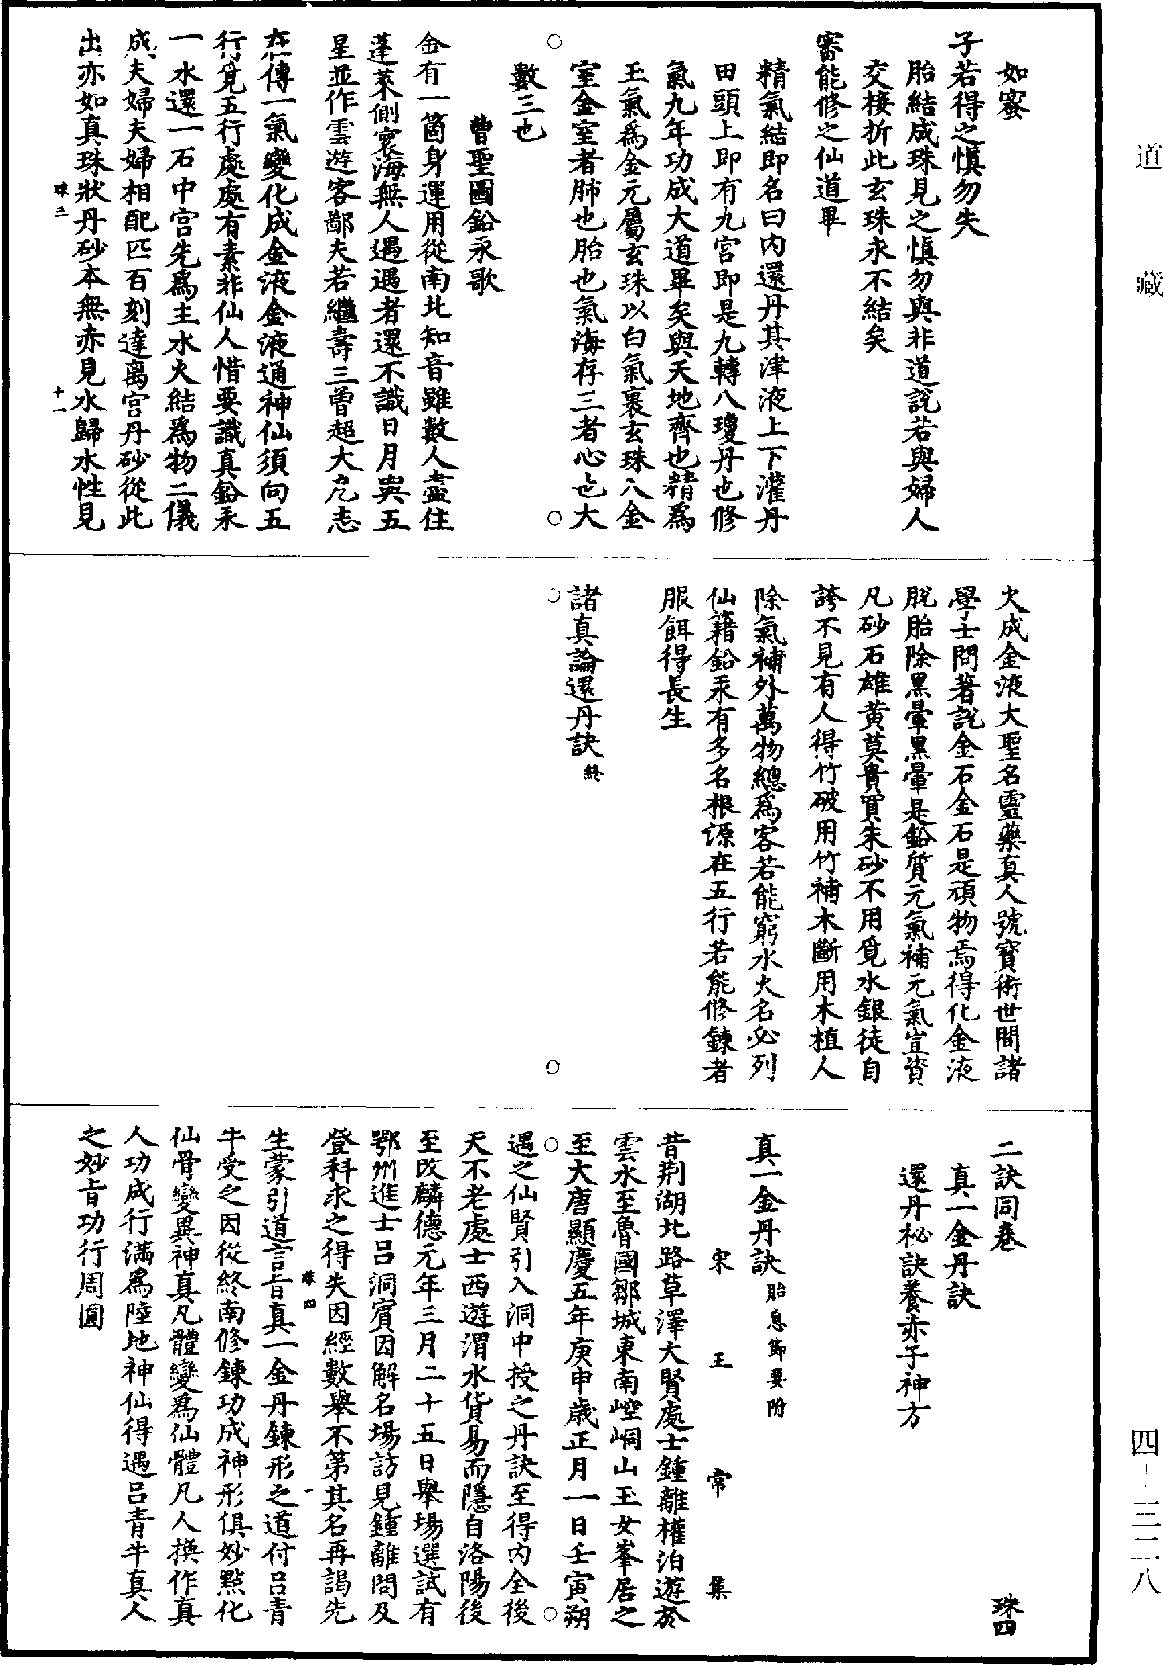 道藏
如蜜
子若得之慎勿失
胎結成珠見之慎勿與非道說若與婦人
交接折此玄珠永不結矣
審能修之仙道畢
精氣結即名曰內還丹其津液上下灌丹
田頭上即有九宮即是九轉八瓊丹也修
氣九年功成大道畢矣與天地齊也精為
玉氣為金元屬玄珠以白氣裹玄珠入金
室金室者肺也胎也氣海存三者心也大
數三也
曹聖圖鉛汞歌
金有一箇身運用從南北知音雖數人盡住
蓬萊側寰海無人遇遇者還不識日月與五
星並作雲遊客鄙夫若繼壽三曾超大凡志
在傳一氣變化成金液金液通神仙須向五
行覓五行處處有素非仙人惜要識真鉛汞
一水還一石中宮先為主水火結為物二儀
成夫婦夫婦相配匹百刻達离宮丹砂從此
出亦如真珠狀丹砂本無赤見水歸水性見
珠三
十一
火成金液大聖名靈藥真人號寶術世間諸
學士問著說金石金石是頑物焉得化金液
脫胎除黑暈黑暈是鉛質元氣補元氣宜資
凡砂石雄黃莫貴買朱砂不用覓水銀徒自
誇不見有人得竹破用竹補木斷用木植人
除氣補外萬物總為客若能窮水火名必列
仙籍鉛汞有多名根源在五行若能修鍊者
服餌得長生
諸真論還丹訣終
二訣同卷
珠四
真一金丹訣
還丹祕訣養赤子神方
真一金丹訣胎息節要附
宋王常集
昔荆湖北路草澤大賢處士鍾離權泊遊於
雲水至魯國鄒城東南崆峒山玉女峯居之
至大唐顯慶五年庚申歲正月一日壬寅朔
遇之仙賢引入洞中授之丹訣至得內全後
天不老處士西遊渭水貨易而隱自洛陽後
至改麟德元年三月二十五日舉場選試有
鄂州進士呂洞賓因解名場訪見鍾離問及
登科求之得失因經數舉不第其名再謁先
珠四
一
生蒙引道言旨真一金丹鍊形之道付呂青
牛受之因從終南修鍊功成神形俱妙點化
仙骨變異神真凡體變為仙體凡人換作真
人功成行滿為陸地神仙得遇呂青牛真人
之妙旨功行周圓
四-三二八